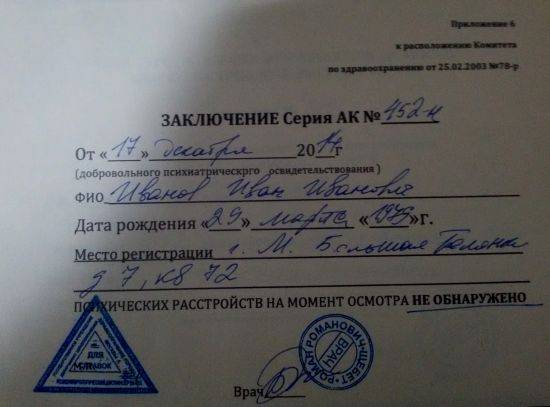 Приложение 6
к расположению Комитета
по здравоохранению от 25.02.2003 №78-р
ЗАКЛЮЧЕНИЕ Серия АК № 452-н
От «17» декабря 2014г
(добровольного психиатрического освидетельствования)
ФИО Иванов Иван Иванович
Дата рождения «29» марта «1979»г.
Место регистрации г. М. Большая Полянка
д 7, кв 72
ПСИХИЧЕСКИХ РАССТРОЙСТВ НА МОМЕНТ ОСМОТРА НЕ ОБНАРУЖЕНО
ДЛЯ
СПРАВОК
РОМАН РОМАНОВИЧ ШЕБЕТ
ВРАЧ
Врач